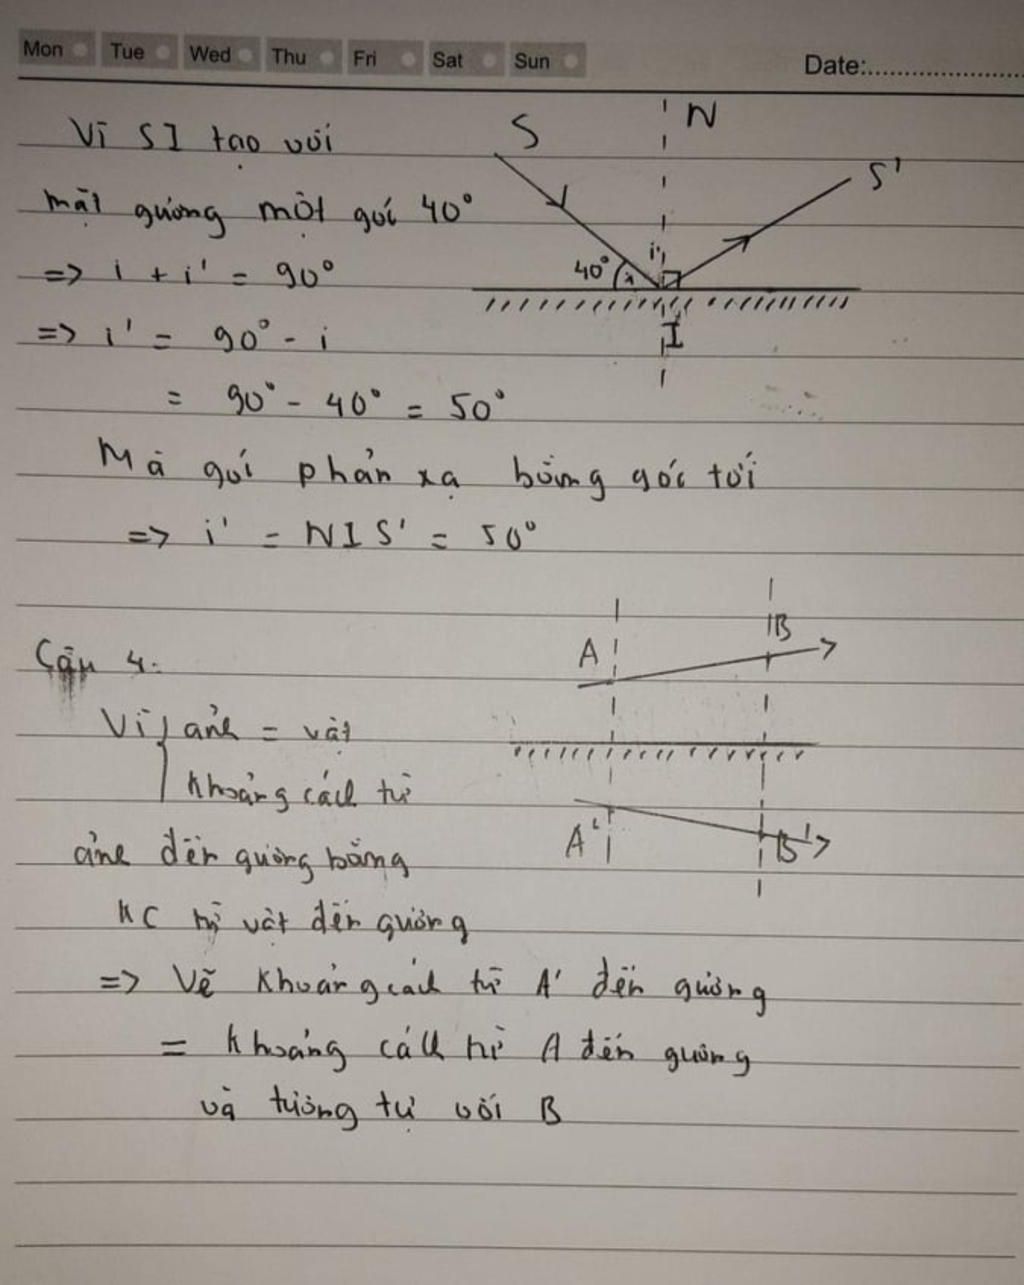 Mon Tue Wed Thu Fri Sat Sun
Date:........................
Vì SI tạo với
mặt gương một gói 40°
=> i + i' = 90°
=> i' = 90° - i
= 90° - 40° = 50°
Mà gói phản xạ bằng góc tới
=> i' = NIS' = 50°
S
N
S'
40°
i
i'
I
Câu 4:
Vì ảnh = vật
khoảng cách từ
ảnh đến gương bằng
KC từ vật đến gương
=> Vẽ khoảng cách từ A' đến gương
= khoảng cách từ A đến gương
và tương tự với B
A
B
A'
B'